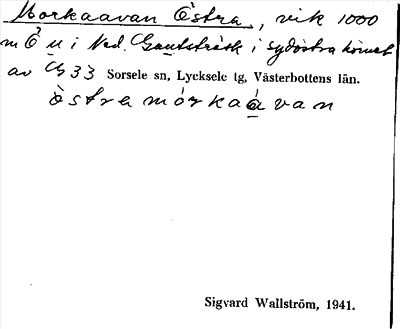 Morkaavan Östra, vik 1000
m Ö u i Ned. Gautsträsk i sydöstra hörnet
av G33 Sorsele sn, Lycksele tg, Västerbottens län.
östramórkaávan
Sigvard Wallström, 1941.